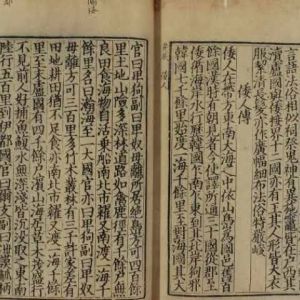 言語法俗相似祠祭鬼神有異施竈皆在戶西其
瀆盧國與倭接界十二國亦有王其人形皆大衣
服絜清長髮亦作廣幅細布法俗特嚴峻
倭人傳
倭人在帶方東南大海之中依山島爲國邑舊百
餘國漢時有朝見者今使譯所通三十國從郡至
倭循海岸水行歷韓國乍南乍東到其北岸狗邪
韓國七千餘里始度一海千餘里至對海國其大
官曰卑狗副曰卑奴母離所居絶島方可四百餘
里土地山險多深林道路如禽鹿徑有千餘戶無
良田食海物自活乗船南北市糴又南渡一海千
餘里名曰瀚海至一大國官亦曰卑狗副曰卑奴
母離方可三百里多竹木叢林有三千許家差有
田地耕田猶不足食亦南北市糴又渡一海千餘
里至末盧國有四千餘戶濱山海居草木茂盛行
不見前人好捕魚鰒水無深淺皆沈沒取之東南
陸行五百里到伊都國官曰爾支副曰泄謨觚柄